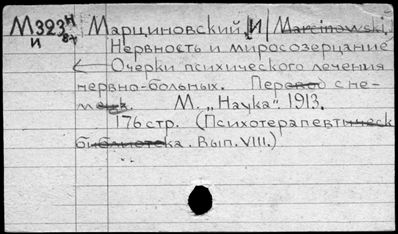 М323 Н Марциновский, И / Marcinowski,
И 8+ Нервность и миросозерцание
Очерки психического лечения
нервно-больных. Перевод с не-
мецк. М. „Наука". 1913.
176 стр. (Психотерапевтическ
библиотека. Вып. VIII.)